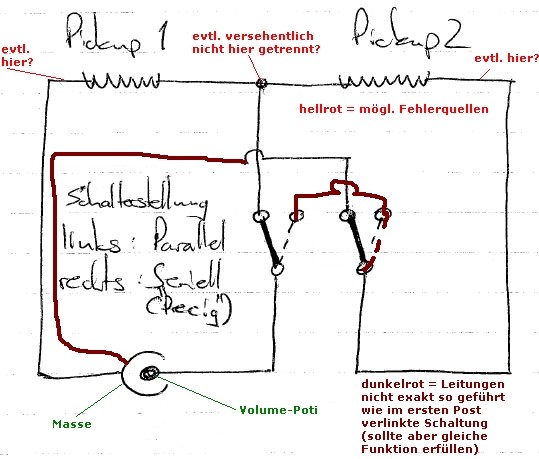 Pickup 1
Pickup 2
evtl.
hier?
evtl. versehentlich
nicht hier getrennt?
evtl. hier?
hellrot = mögl. Fehlerquellen
Schalterstellung
links: Parallel
rechts: Seriell
("Precig")
Masse
Volume-Poti
dunkelrot = Leitungen
nicht exakt so geführt
wie im ersten Post
verlinkte Schaltung
(sollte aber gleiche
Funktion erfüllen)